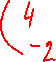 ( 4
-2